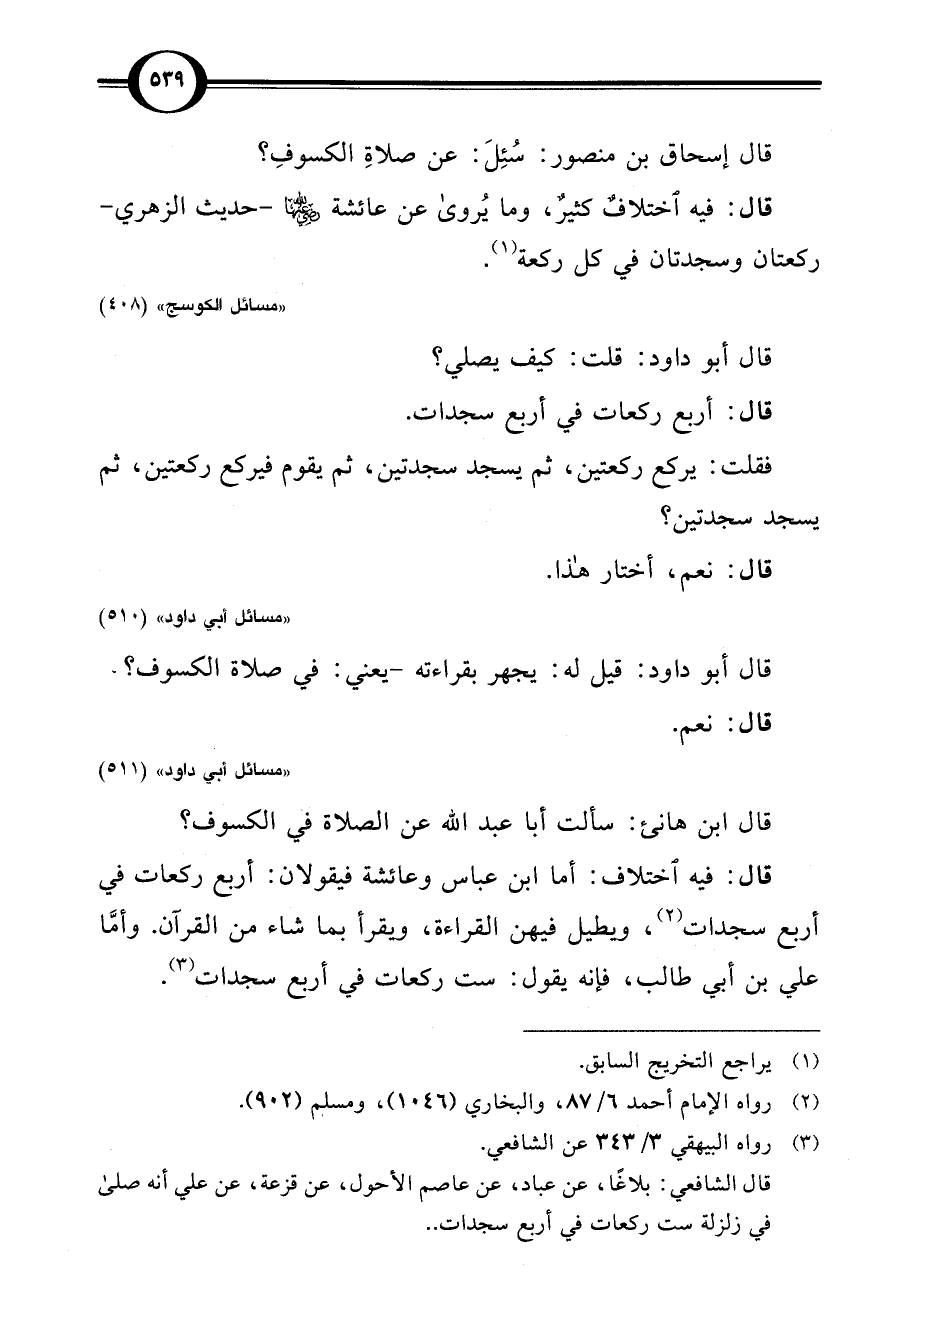 ٥٣٩
قال إسحاق بن منصور: سُئِلَ: عن صلاةِ الكسوفِ؟
قال: فيه ٱختلافٌ كثيرٌ، وما يُروىٰ عن عائشة رضي الله عنها -حديث الزهري-
ركعتان وسجدتان في كل ركعة(١).
«مسائل الكوسج» (٤٠٨)
قال أبو داود: قلت: كيف يصلي؟
قال: أربع ركعات في أربع سجدات.
فقلت: يركع ركعتين، ثم يسجد سجدتين، ثم يقوم فيركع ركعتين، ثم
يسجد سجدتين؟
قال: نعم، أختار هٰذا.
«مسائل أبي داود» (٥١٠)
قال أبو داود: قيل له: يجهر بقراءته -يعني: في صلاة الكسوف؟.
قال: نعم.
«مسائل أبي داود» (٥١١)
قال ابن هانئ: سألت أبا عبد الله عن الصلاة في الكسوف؟
قال: فيه ٱختلاف: أما ابن عباس وعائشة فيقولان: أربع ركعات في
أربع سجدات(٢)، ويطيل فيهن القراءة، ويقرأ بما شاء من القرآن. وأمَّا
علي بن أبي طالب، فإنه يقول: ست ركعات في أربع سجدات(٣).
(١) يراجع التخريج السابق.
(٢) رواه الإمام أحمد ٦/ ٨٧، والبخاري (١٠٤٦)، ومسلم (٩٠٢).
(٣) رواه البيهقي ٣/ ٣٤٣ عن الشافعي.
قال الشافعي: بلاغًا، عن عباد، عن عاصم الأحول، عن قزعة، عن علي أنه صلىٰ
في زلزلة ست ركعات في أربع سجدات..